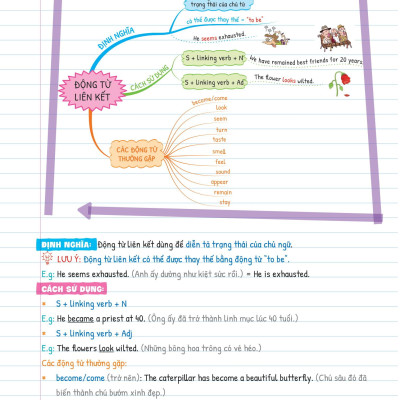 trạng thái của chủ từ
có thể được thay thế = "to be"
He seems exhausted.
ĐỊNH NGHĨA
ĐỘNG TỪ
LIÊN KẾT
CÁCH SỬ DỤNG
S + linking verb + N
We have remained best friends for 20 years.
S + linking verb + Adj
The flower looks wilted.
CÁC ĐỘNG TỪ
THƯỜNG GẶP
become/come
look
seem
turn
taste
smell
feel
sound
appear
remain
stay
ĐỊNH NGHĨA: Động từ liên kết dùng để diễn tả trạng thái của chủ ngữ.
LƯU Ý: Động từ liên kết có thể được thay thế bằng động từ "to be".
E.g: He seems exhausted. (Anh ấy dường như kiệt sức rồi.) = He is exhausted.
CÁCH SỬ DỤNG:
* S + linking verb + N
E.g: He became a priest at 40. (Ông ấy đã trở thành linh mục lúc 40 tuổi.)
* S + linking verb + Adj
E.g: The flowers look wilted. (Những bông hoa trông có vẻ héo.)
Các động từ thường gặp:
* become/come (trở nên): The caterpillar has become a beautiful butterfly. (Chú sâu đó đã
biến thành chú bướm xinh đẹp.)